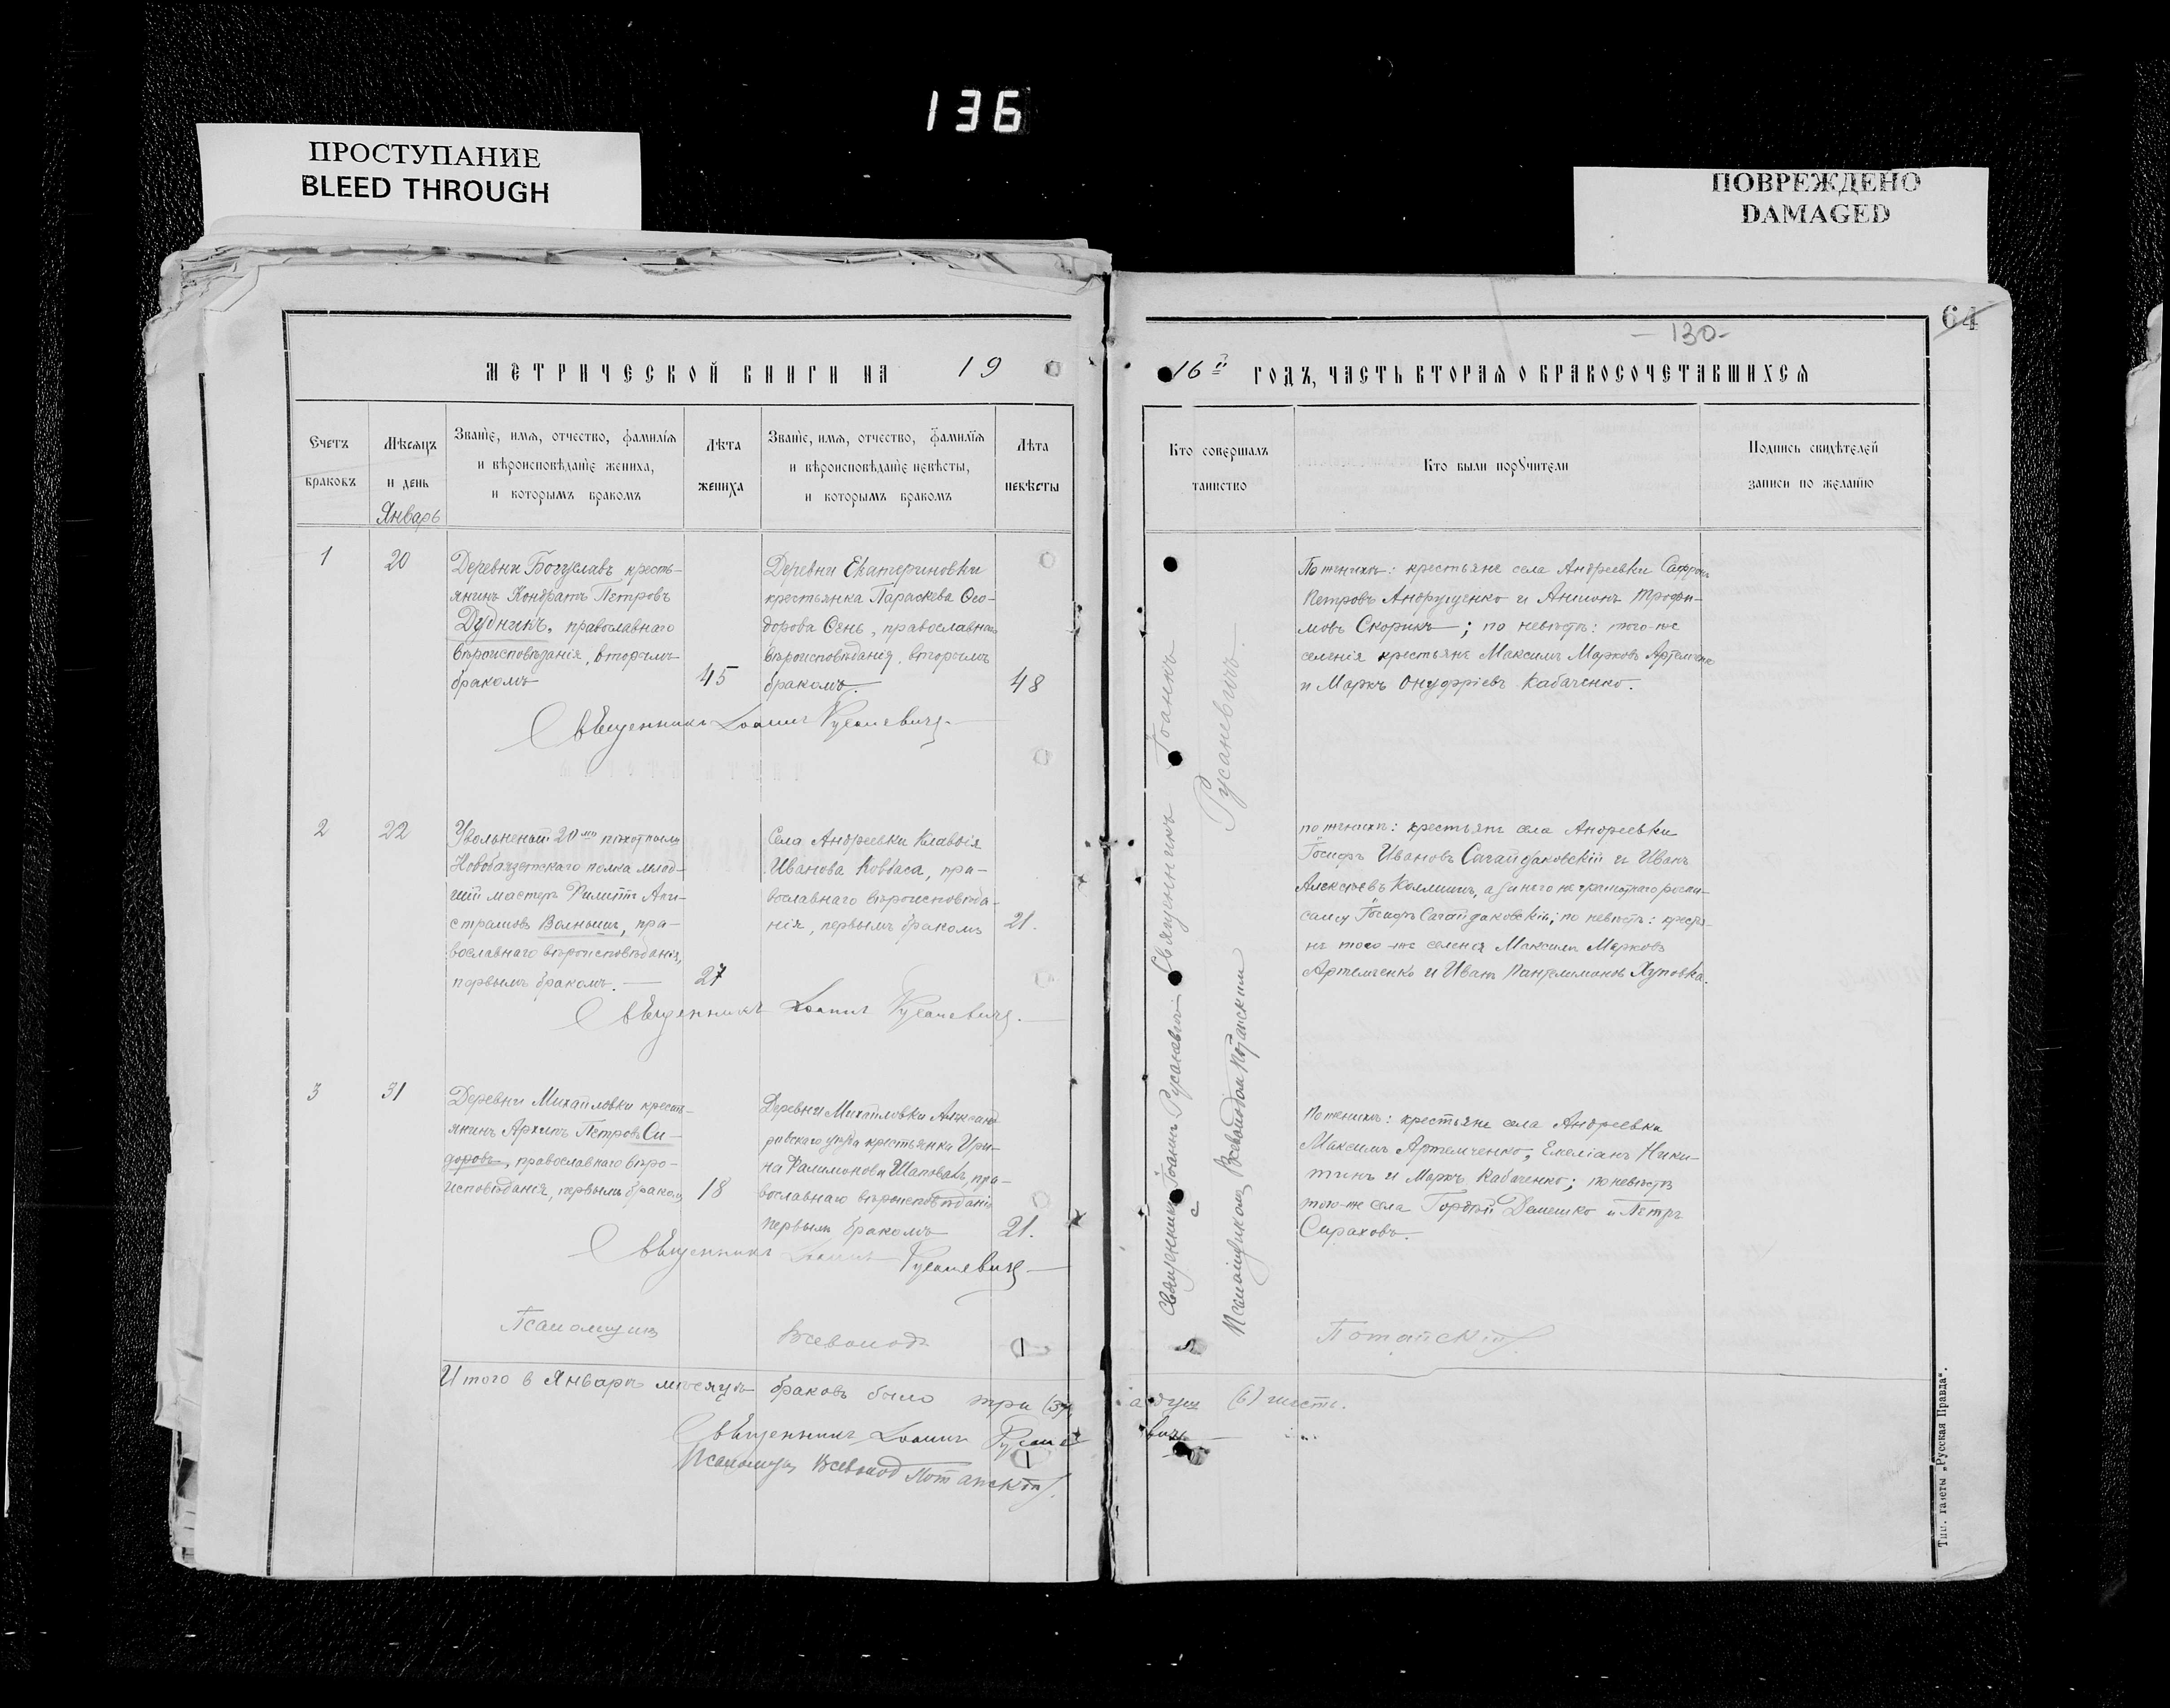 136
ПРОСТУПАНИЕ
BLEED THROUGH
ПОВРЕЖДЕНО
DAMAGED
64
-130-
МЕТРИЧЕСКОЙ КНИГИ НА 19
16й ГОДЪ, ЧАСТЬ ВТОРАЯ О БРАКОСОЧЕТАВШИХСЯ
Счетъ
браковъ
Мѣсяцъ
и день
Январь
Званіе, имя, отчество, фамилія
и вѣроисповѣданіе жениха,
и которымъ бракомъ
Лѣта
жениха
Званіе, имя, отчество, фамилія
и вѣроисповѣданіе невѣсты,
и которымъ бракомъ
Лѣта
невѣсты
Кто совершалъ
таинство
Кто были поручители
Подпись свидѣтелей
записи по желанію
1
20
Деревни Богуславъ кресть-
янинъ Кондратъ Петровъ
Дудникъ, православнаго
вѣроисповѣданія, вторымъ
бракомъ
45
Деревни Екатериновки
крестьянка Параскева Ѳео-
дорова Сень, православнаго
вѣроисповѣданія, вторымъ
бракомъ.
48
Священникъ Іоаннъ Русаневичъ.
По женихѣ: крестьяне села Андреевки Сафронъ
Петровъ Андрущенко и Антонъ Трофи-
мовъ Скорикъ; по невѣстѣ: того-же
селенія крестьяне Максимъ Марковъ Артемченко
и Маркъ Онуфріевъ Кабаченко.
2
22
Уволенный 20мо пѣхотнымъ
Новобаязетскаго полка млад-
шій мастеръ Филиппъ
православнаго вѣроисповѣданія,
первымъ бракомъ.
27
Села Андреевки Клавдія
Иванова Ковбаса, пра-
вославнаго вѣроисповѣда-
нія, первымъ бракомъ
21.
Священникъ Іоаннъ Русаневичъ.
по женихѣ: крестьяне села Андреевки
Іосифъ Ивановъ Сагайдаковскій и Иванъ
Алексѣевъ а за него неграмотнаго роспи-
сался Іосифъ Сагайдаковскій; по невѣстѣ: крестья-
не того-же селенія Максимъ Марковъ
Артемченко и Иванъ Пантелимоновъ
3
31
Деревни Михайловки кресть-
янинъ Архипъ Петровъ Си-
доровъ, православнаго вѣро-
исповѣданія, первымъ бракомъ
18
Деревни Михайловки Александ-
ровскаго уѣзда крестьянка Ири-
на Филимонова Шаповалъ, пра-
вославнаго вѣроисповѣданія
первымъ бракомъ
21.
Священникъ Іоаннъ Русаневичъ
По женихѣ: крестьяне села Андреевки
Максимъ Артемченко, Емеліанъ Ники-
тинъ и Маркъ Кабаченко; по невѣстѣ
того-же села Гордѣй Демешко и Петръ
Сираховъ.
Священникъ Іоаннъ
Русаневичъ.
Священникъ Іоаннъ Русаневичъ
с
Псаломщикомъ Всеволодомъ Потапскимъ
Псаломщикъ Всеволодъ Потапскій
Итого в Январѣ мѣсяцѣ браковъ было три (3), а душ (6) шесть.
Священникъ Іоаннъ Русаневичъ
Псаломщ. Всеволод Потапскій.
Тип. газеты „Русская Правда“.